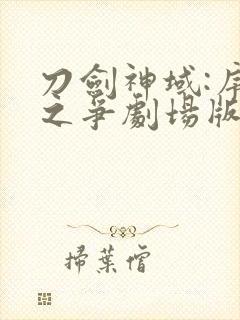 刀劍神域:序
之爭劇場版
掃葉僧